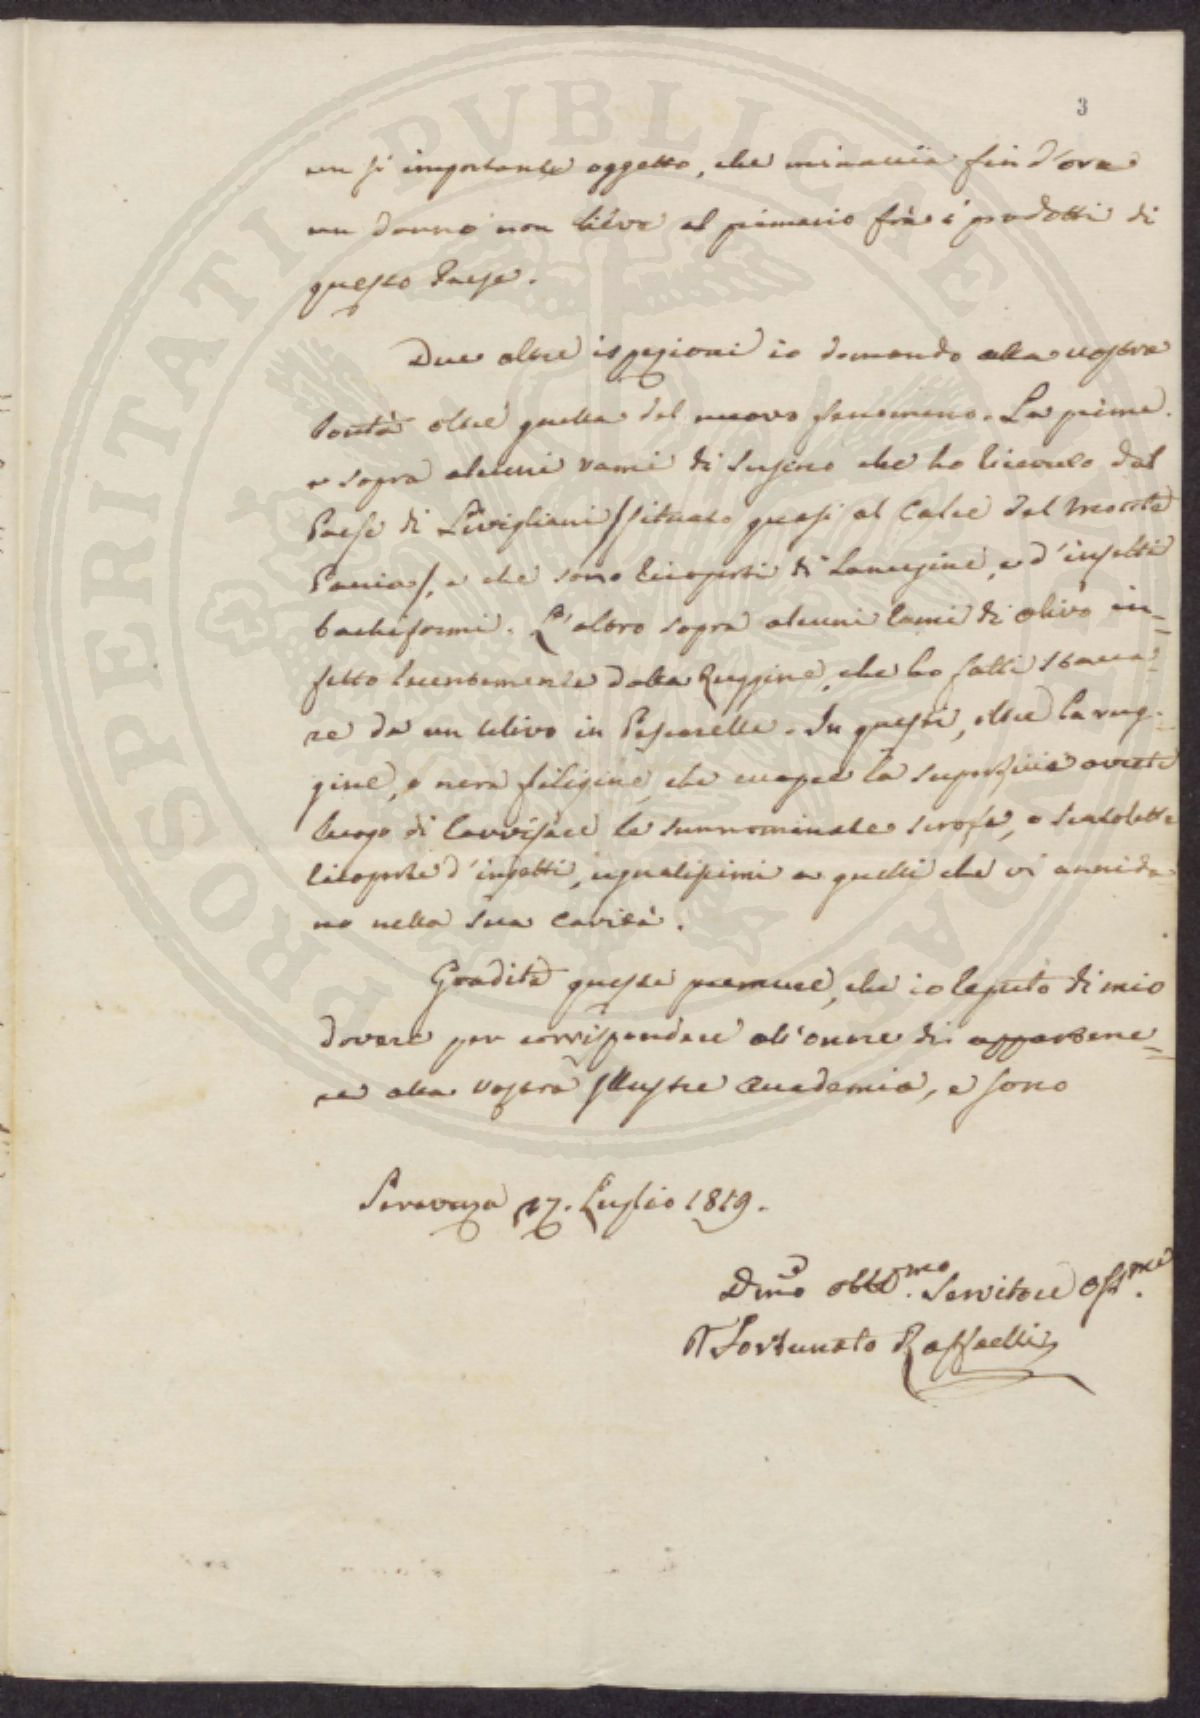 3
un sì importante oggetto, che minaccia fin d'ora
un danno non lieve al primario fra i prodotti di
questo Paese.
Due altre ispezioni io domando alla vostra
bontà oltre quella del nuovo fenomeno. La prima
sopra alcuni rami di Susino che ho ricevuto dal
Paese di Livigliani /situato quasi al Calce del Monte
Pania/, e che sono ricoperti di Lanugine, e d'insetti
bachiformi. L'altro sopra alcuni rami di olivo in=
fetto recentemente dalla Ruggine, che ho fatti stacca=
re da un Ulivo in . In questi, oltre la rug=
gine, o nera filigine, che occupa la superficie avrete
luogo di ravvisare le sunnominate scrofe, o scatolette
ricoperte d'insetti, ugualissimi a quelli che vi annida
no nella sua cavità.
Gradite queste premure, che io reputo di mio
dovere per corrispondere all'onore di appartene=
re alla vostra Illustre Accademia, e sono
Seravezza 27. Luglio 1819.
Dmo obbmo. Servitore Affme.
Fortunato Raffaelli
PROSPERITATI PVBLICAE AVGENDAE